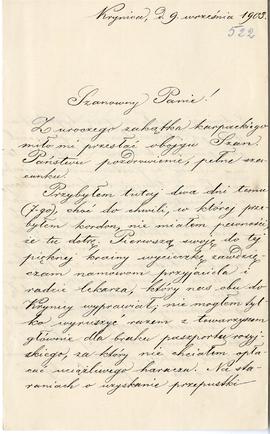 Krynica, d. 9. września 1903.
522
Szanowny Panie!
Z uroczego zakątka karpackiego
miło mi przesłać obojgu Szan.
Państwu pozdrowienie, pełne sza-
cunku.
Przybyłem tutaj dwa dni temu
(7-go), choć do chwili, w której prze-
byłem kordon, nie miałem pewności,
że tu dotrę. Pierwszą swoję do tej
pięknej krainy wycieczkę zawdzię-
czam namowom przyjaciela i
radzie lekarza, który nas obu do
Krynicy wyprawiał; nie mogłem tyl-
ko wyruszyć razem z towarzyszem
głównie dla braku paszportu rosyj-
skiego, za który nie chciałem opła-
cać uciążliwego haraczu. Na sta-
raniach o uzyskanie przepustki